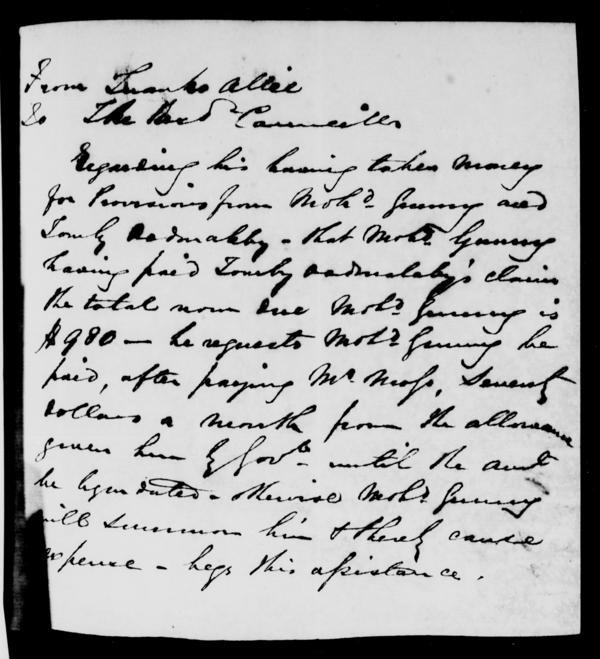 From Tuanko Allie
To The Resd. Councillr
Regarding his having taken money
for Provisions from Mohd. Gunny and
Tomby - that Mohd. Gunny
having paid Tomby claim
the total now due Mohd. Gunny is
$980 — he requests Mohd. Gunny be
paid, after paying Mr. Moss, Seventy
dollars a month from the allowance
given him by Govt. - until the amt.
be liquidated - otherwise Mohd. Gunny
will summon him & thereby cause
expense - begs this assistance.